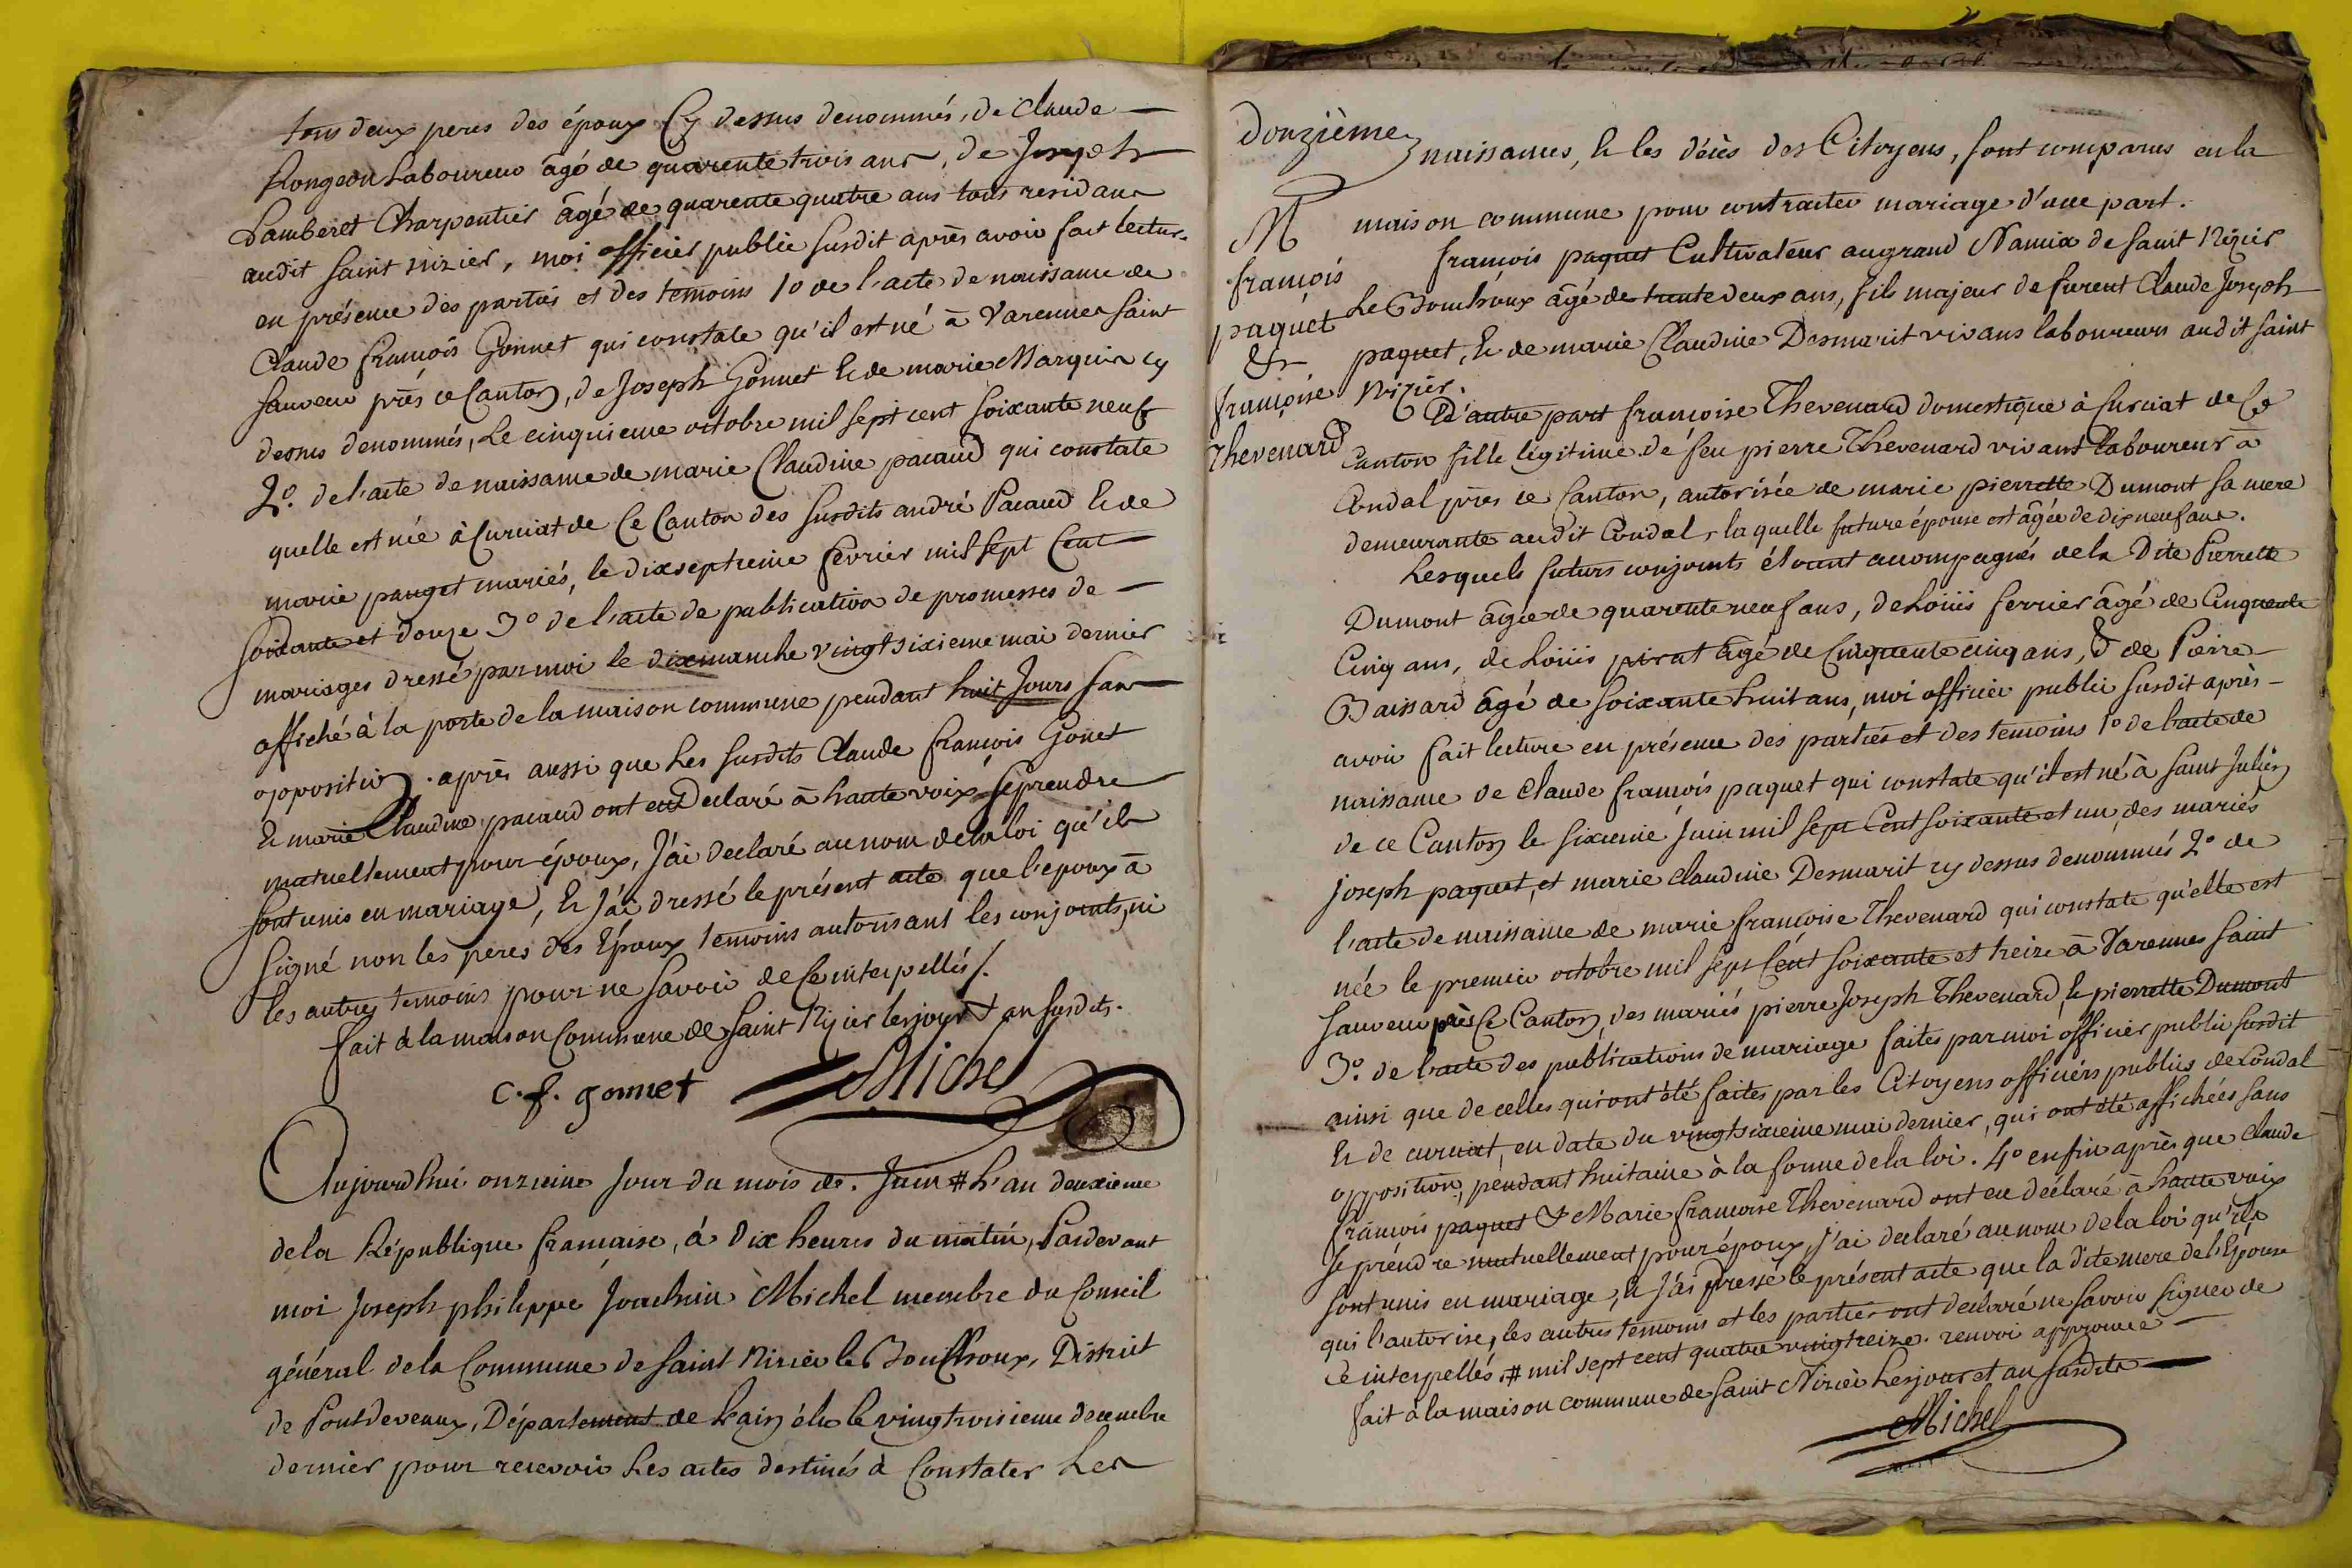 tous deux peres des époux Cy dessus denommés, de Claude
Rongeon Laboureur âgé de quarente trois ans, de Joseph
Lamberet Charpentier âgé de quarente quatre ans tous residans
audit saint nizier, moi officier public susdit après avoir fait lecture
en présence des parties et des temoins 1o de l'acte de naissance de
Claude françois Gonnet qui constate qu'il est né à Varennes saint
sauveur près ce Canton, de Joseph Gonnet & de marie Marguin cy
dessus denommés, Le cinquieme octobre mil sept cent soixante neuf
2o. de l'acte de naissance de marie Claudine pacaud qui constate
quelle est née à Curciat de Ce Canton des susdits andré Pacaud & de
marie pauget mariés, le dixseptieme fevrier mil sept Cent
soixante et douze 3o de l'acte de publication de promesses de
mariages dressé par moi le dixmanche vingt sixieme mai dernier
affiché à la porte de la maison commune pendant huit Jours san
opposition. après aussi que Les susdits Claude françois Gonet
& marie Claudine pacaud ont eu Declaré à haute voix se prendre
mutuellement pour époux, J'ai declaré au nom de la loi qu'ils
sont unis en mariage, & J'ai dressé le présent acte que l'epoux à
signé non les peres des Epoux temoins autorisant les conjoints, ni
les autres temoins pour ne savoir de Ce interpellés /.
fait à la maison Commune de Saint Nizier les jour & an susdits.
c. f. gonnet Michel
Aujourdhui onzieme Jour du mois de. Juin # L'an deuxieme
de la République française, à dix heures du matin, Pardevant
moi Joseph philippe Joachim Michel membre du Conseil
général de la Commune de saint Nizier le Bouchoux, District
de Pontdevaux, Département de L'ain élu le vingt troisieme decembre
dernier pour recevoir Les actes destinés à Constater Les
douzième
naissances, & les décès des Citoyens, sont comparus en la
maison commune pour contracter mariage d'une part.
M
françois
paquet
&
françoise
Thevenard
françois paquet Cultivateur au grand Namix de saint Nizier
Le Bouchoux âgé de trente deux ans, fils majeur de furent Claude Joseph
paquet, & de marie Claudine Desmarit vivans laboureurs audit saint
Nizier.
D'autre part françoise Thevenard domestique à Curciat de Ce
Canton fille légitime de feu pierre Thevenard vivant Laboureur à
Condal près ce Canton, autorisée de marie pierrette Dumont sa mere
demeurante audit Condal, la quelle future épouse est âgée de dix neuf ans.
Lesquels futurs conjoints étant acompagnés de la Dite Pierrette
Dumont âgée de quarente neuf ans, de Loüis ferrier âgé de Cinquente
Cinq ans, de Loüis pirat âgé de Cinquente cinq ans, & de Pierre
Baissard âgé de soixante huit ans, moi officier public susdit après
avoir fait lecture en présence des parties et des temoins 1o de l'acte de
naissance de Claude françois paquet qui constate qu'il est né à saint Julien
de ce Canton le sixieme Juin mil sept Cent soixante et un, des mariés
joseph paquet, et marie claudine Desmarit cy dessus denommés 2o de
l'acte de naissance de marie françoise Thevenard qui constate qu'elle est
née le premier octobre mil sept Cent soixante et treize à Varennes saint
sauveur près Ce Canton, des mariés pierre Joseph Thevenard, & pierrette Dumont
3o. de l'acte des publications de mariage faites par moi officier public susdit
ainsi que de celles qui ont été faites par les Citoyens officiers publics de Condal
& de curciat, en date du vingt sixieme mai dernier, qui ont été affichées sans
opposition, pendant huitaine à la forme de la loi. 4o enfin après que claude
françois paquet & Marie françoise Thevenard ont eu déclaré à haute voix
se prendre mutuellement pour époux, j'ai declaré au nom de la loi qu'ils
sont unis en mariage, & J'ai dressé le présent acte que la dite mere de l'Epouse
qui l'autorise, les autres temoins et les parties ont declaré ne savoir signer de
ce interpellés. # mil sept cent quatre vingt treize. renvoi approuvé
fait à la maison commune de saint Nizier Les jour et an susdits
Michel